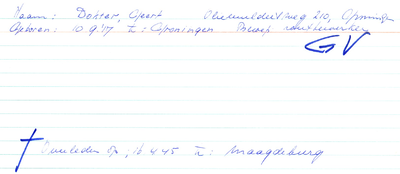 Naam: Dokter, Geert Oliemuldersweg 210, Groningen
Geboren: 10.9.'17 te: Groningen Beroep
GV
Overleden op: 16.4.45 te: Maagdeburg